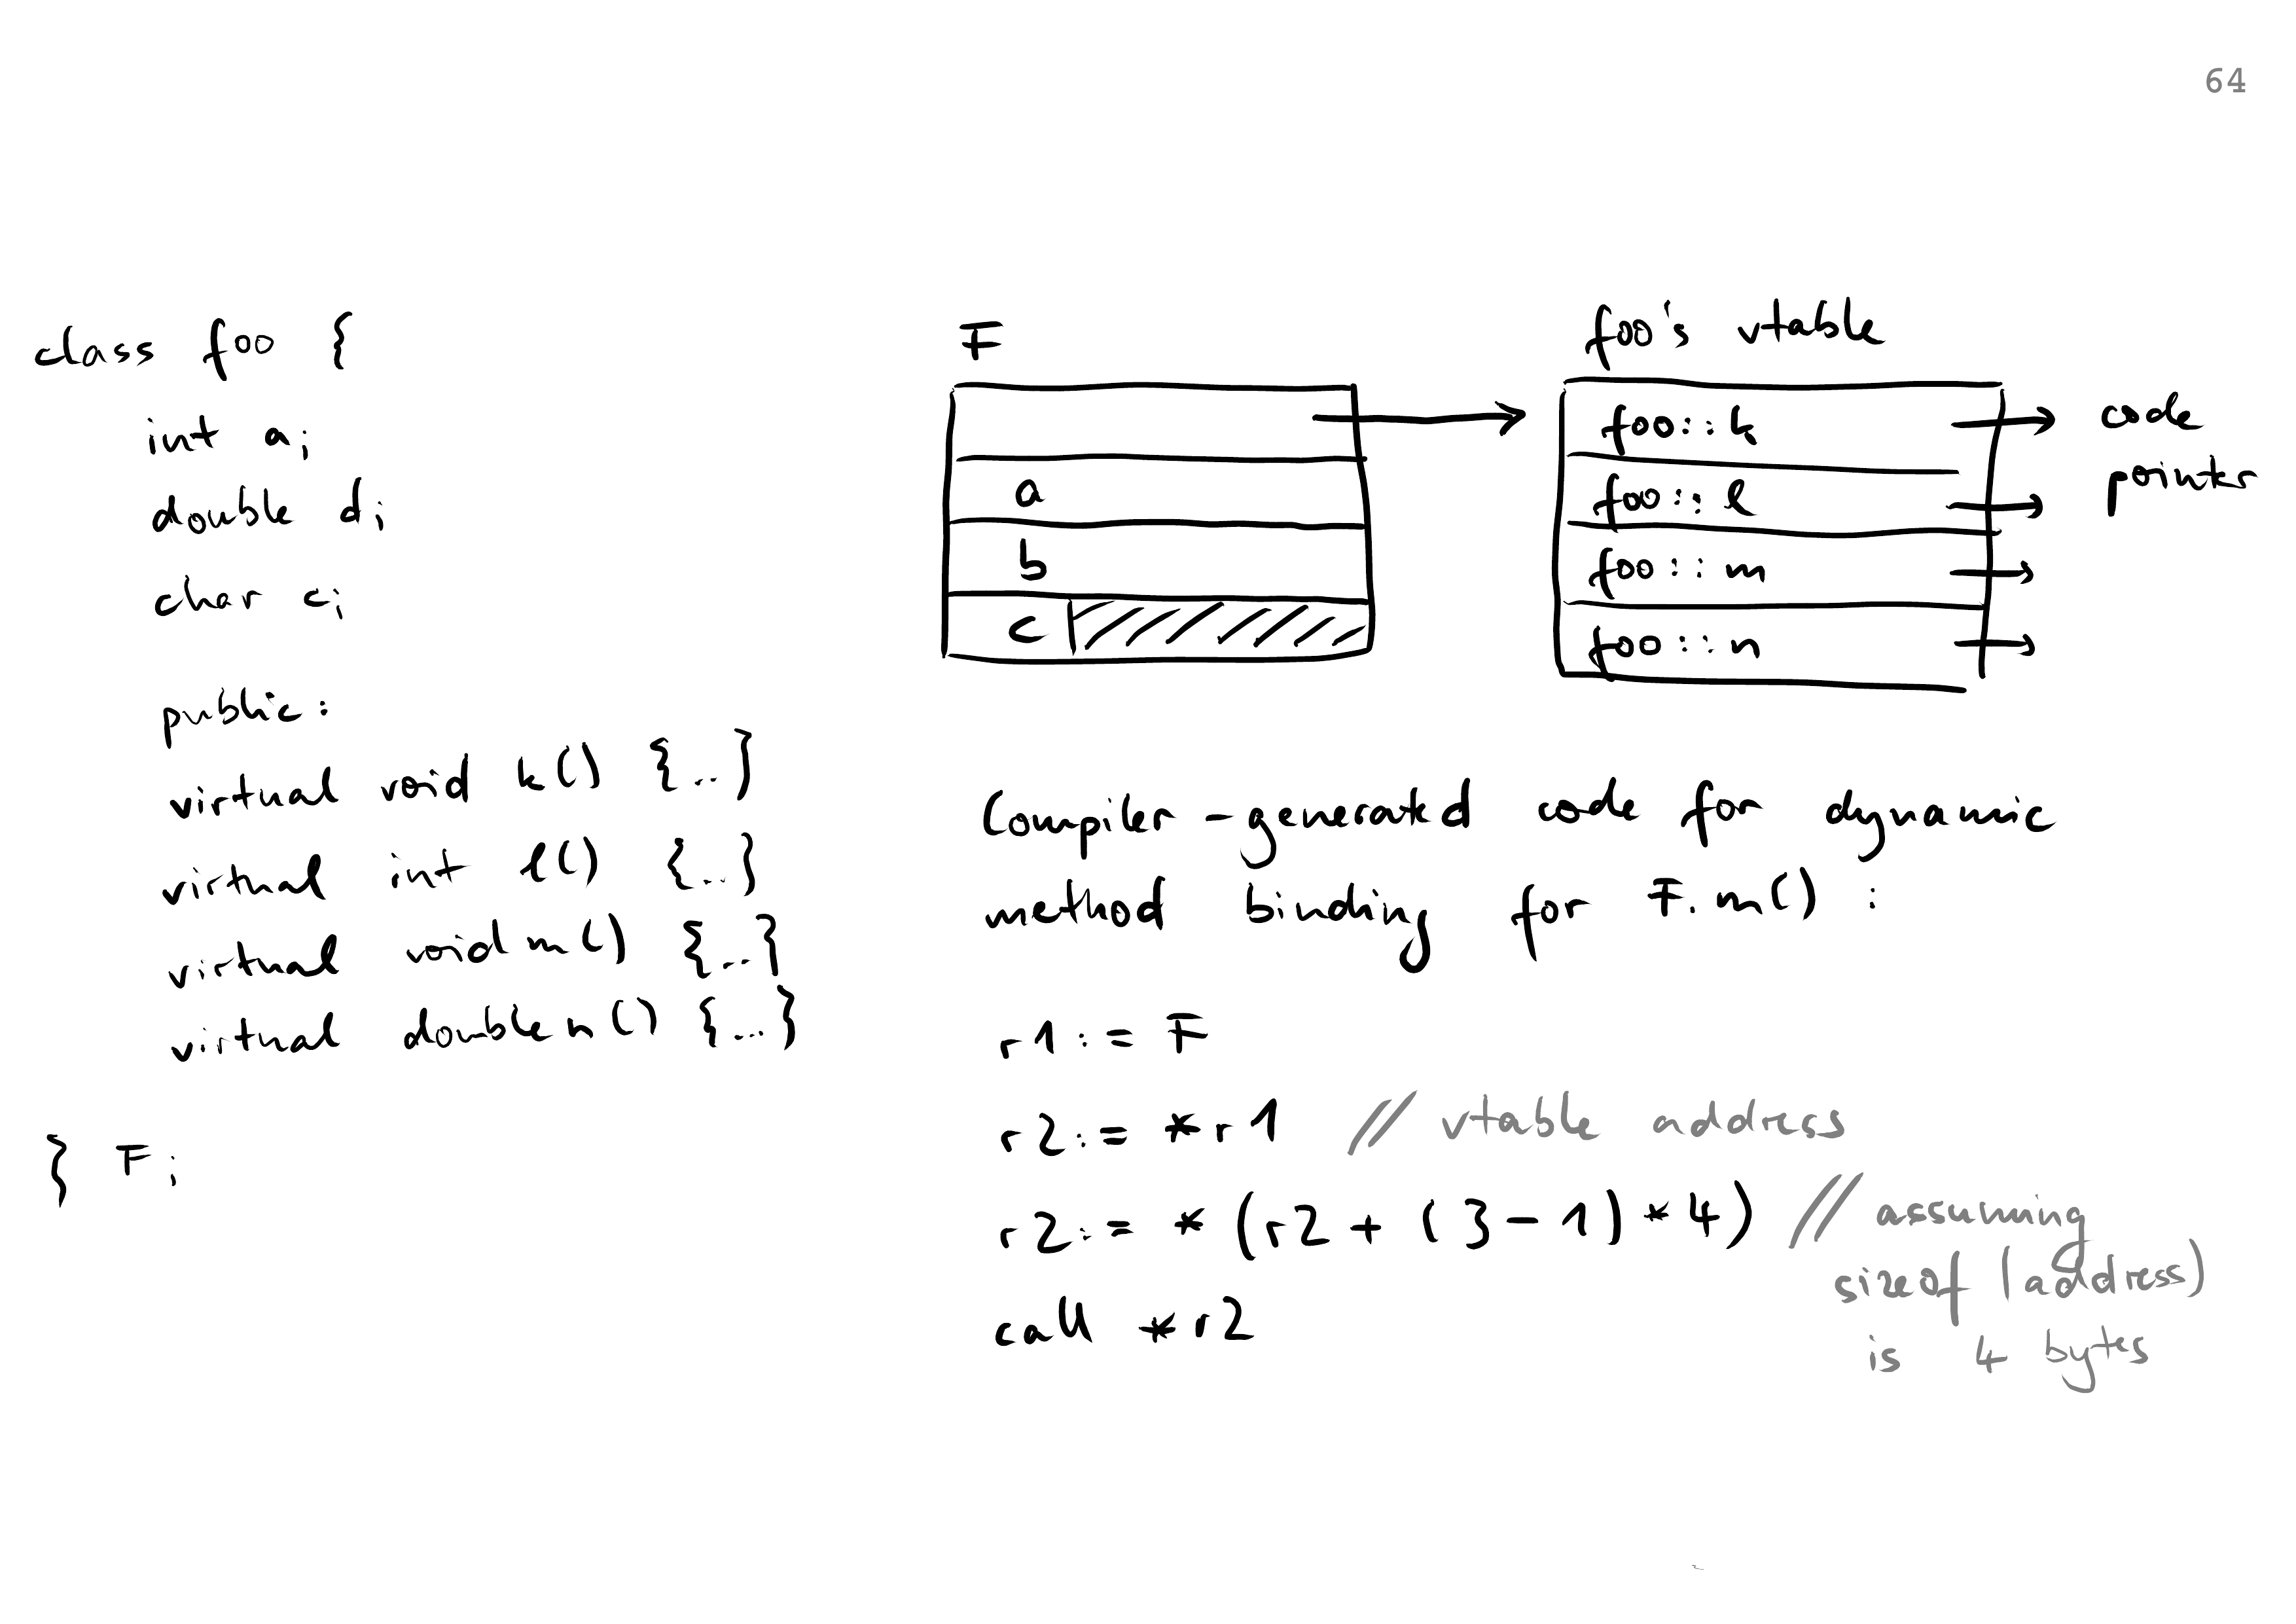 64
class foo {
int a;
double d;
char c;
public:
virtual void k() {..}
virtual int l() {..}
virtual void m() {..}
virtual double n() {...}
} F;
F
a
b
c
foo's vtable
foo::k
foo::l
foo::m
foo::n
code
pointer
Compiler-generated code for dynamic
method binding for F.m() :
r1 := F
r2 := *r1 // vtable address
r2 := *(r2 + (3-1)*4) // assuming
sizeof (address)
is 4 bytes
call *r2